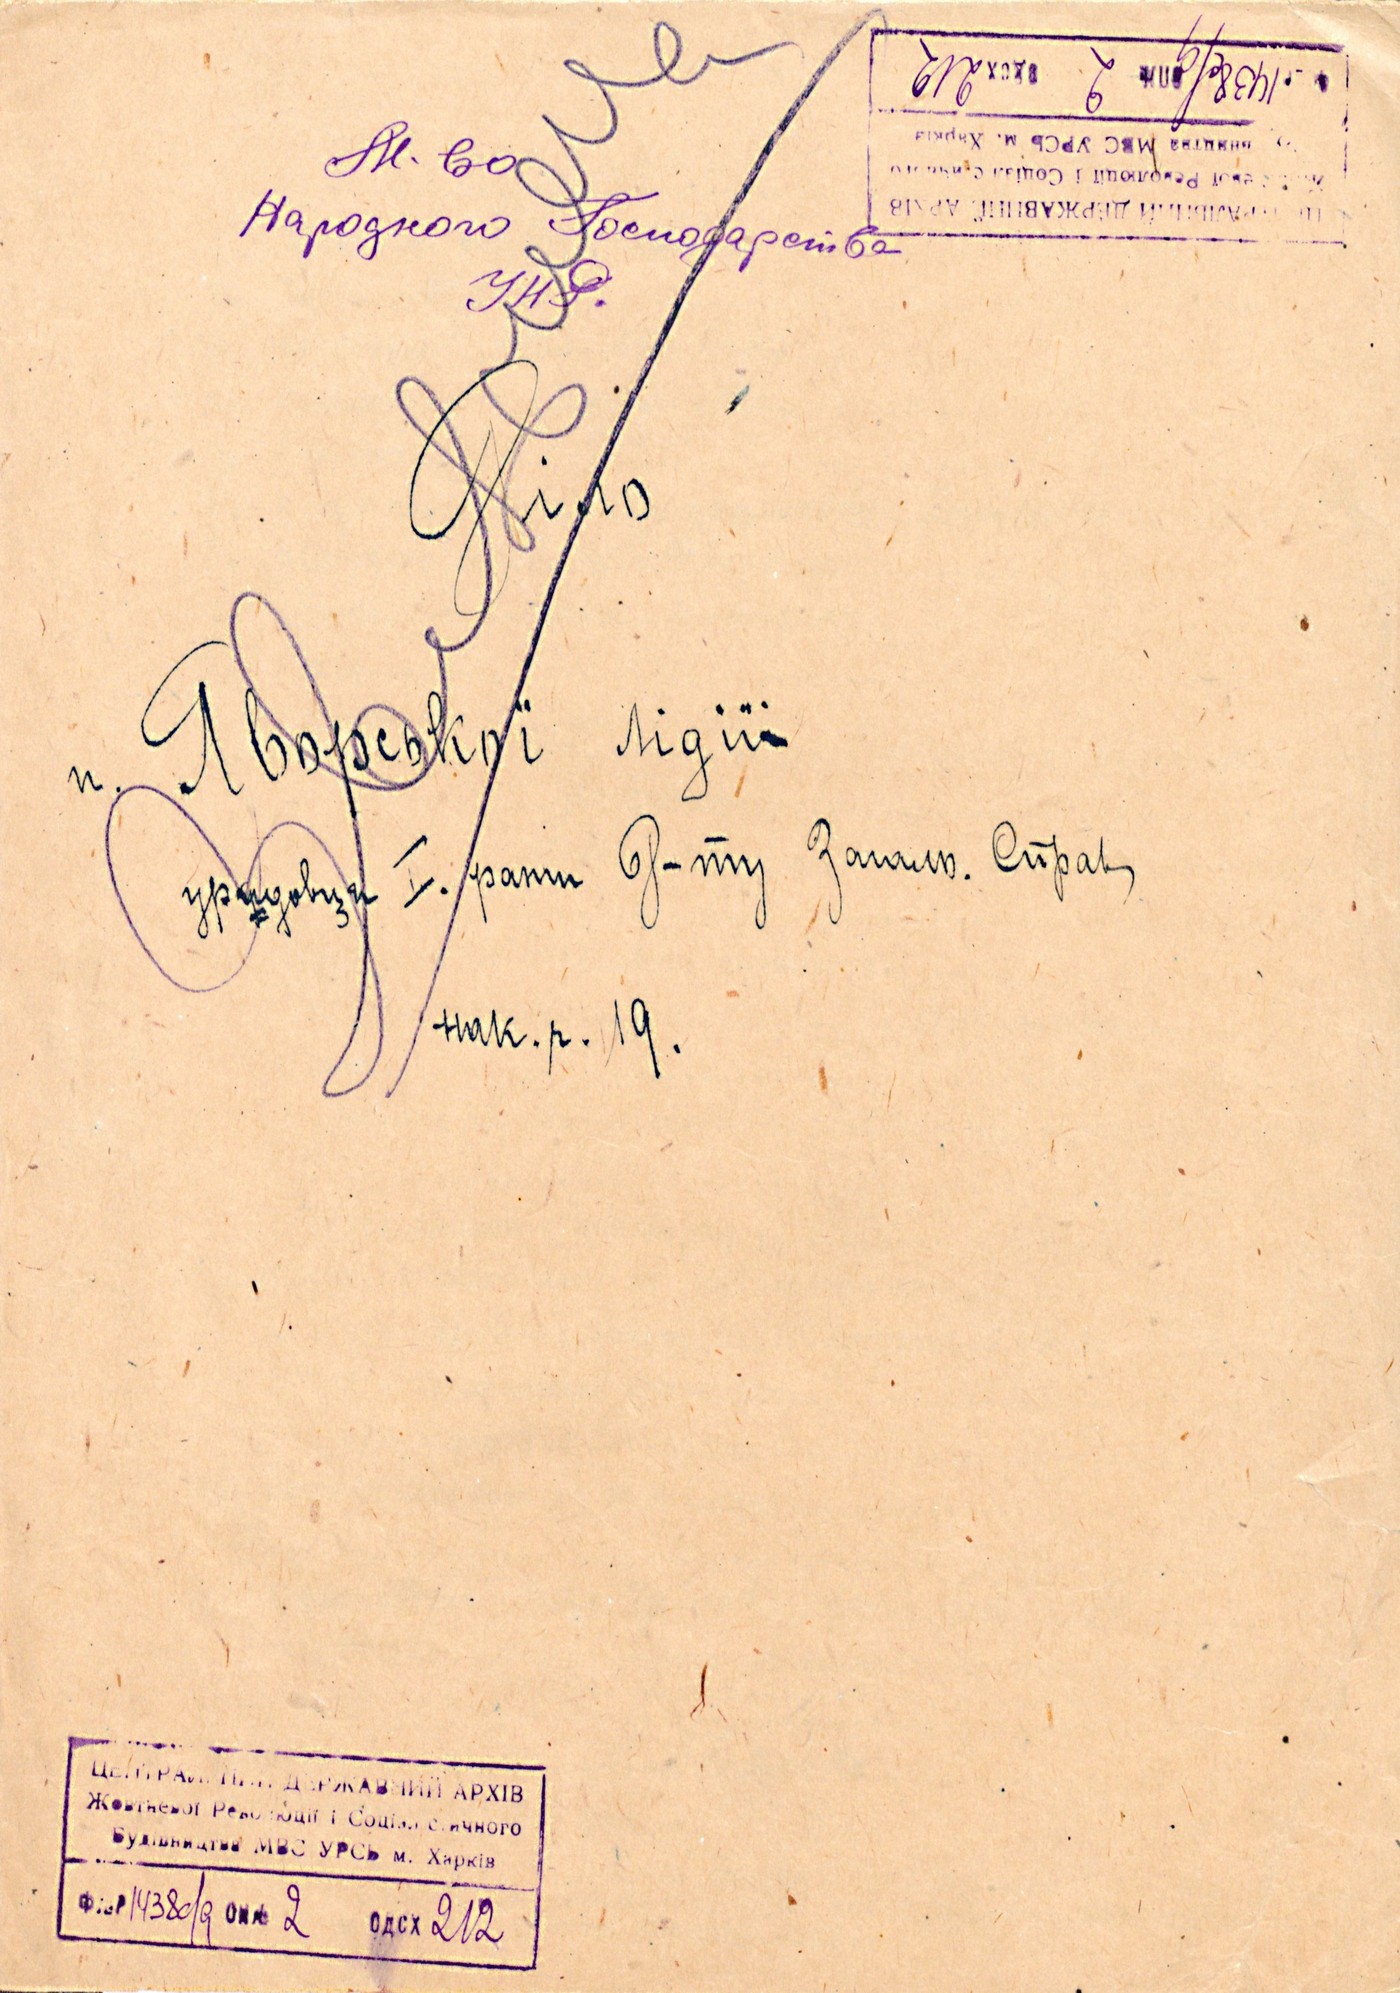 М-во
Народного Господарства
УНР.
Діло
п. Яворської Лідії
урядовця І. ранги Д-ту Загальн. Справ
нак. р. 19.
ЦЕНТРАЛЬНИЙ ДЕРЖАВНИЙ АРХІВ
Жовтневої Революції і Соціалістичного
Будівництва МВС УРСЬ м. Харків
ОП№ 2 ОДСХ 212
ЦЕНТРАЛЬНИЙ ДЕРЖАВНИЙ АРХІВ
Жовтневої Революції і Соціалістичного
Будівництва МВС УРСЬ м. Харків
Ф.№Р 1438с/9 ОП№ 2 ОДСХ 212